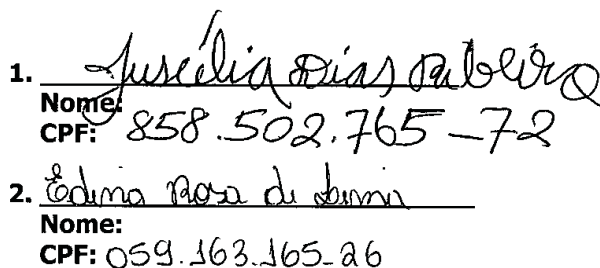 1. Juscélia Dias Ribeiro
Nome:
CPF: 858.502.765-72
2. Edina Rosa de Lima
Nome:
CPF: 059.163.165-26